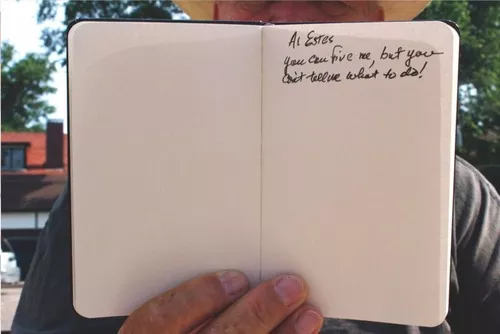 Al Estes
you can fire me, but you
can't tell me what to do!